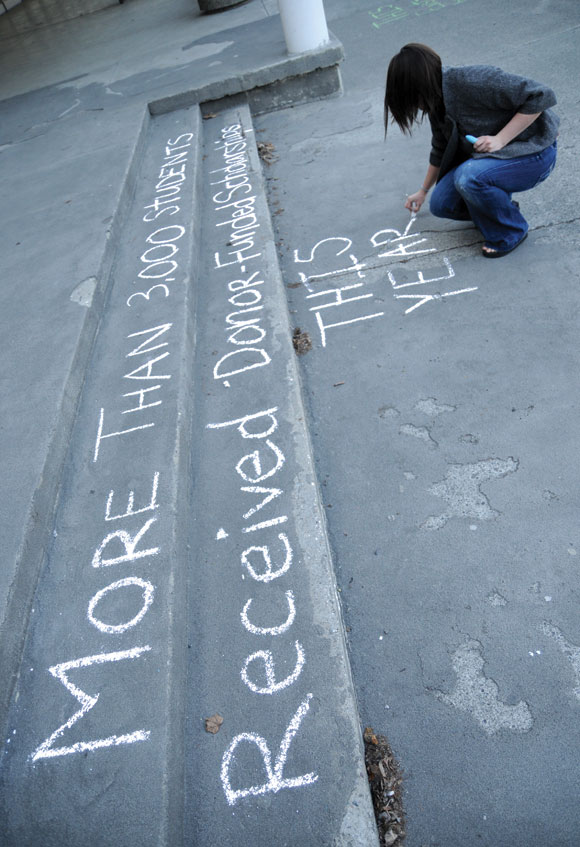 MORE THAN 3,000 STUDENTS
Received Donor-Funded Scholarships
THIS
YEAR